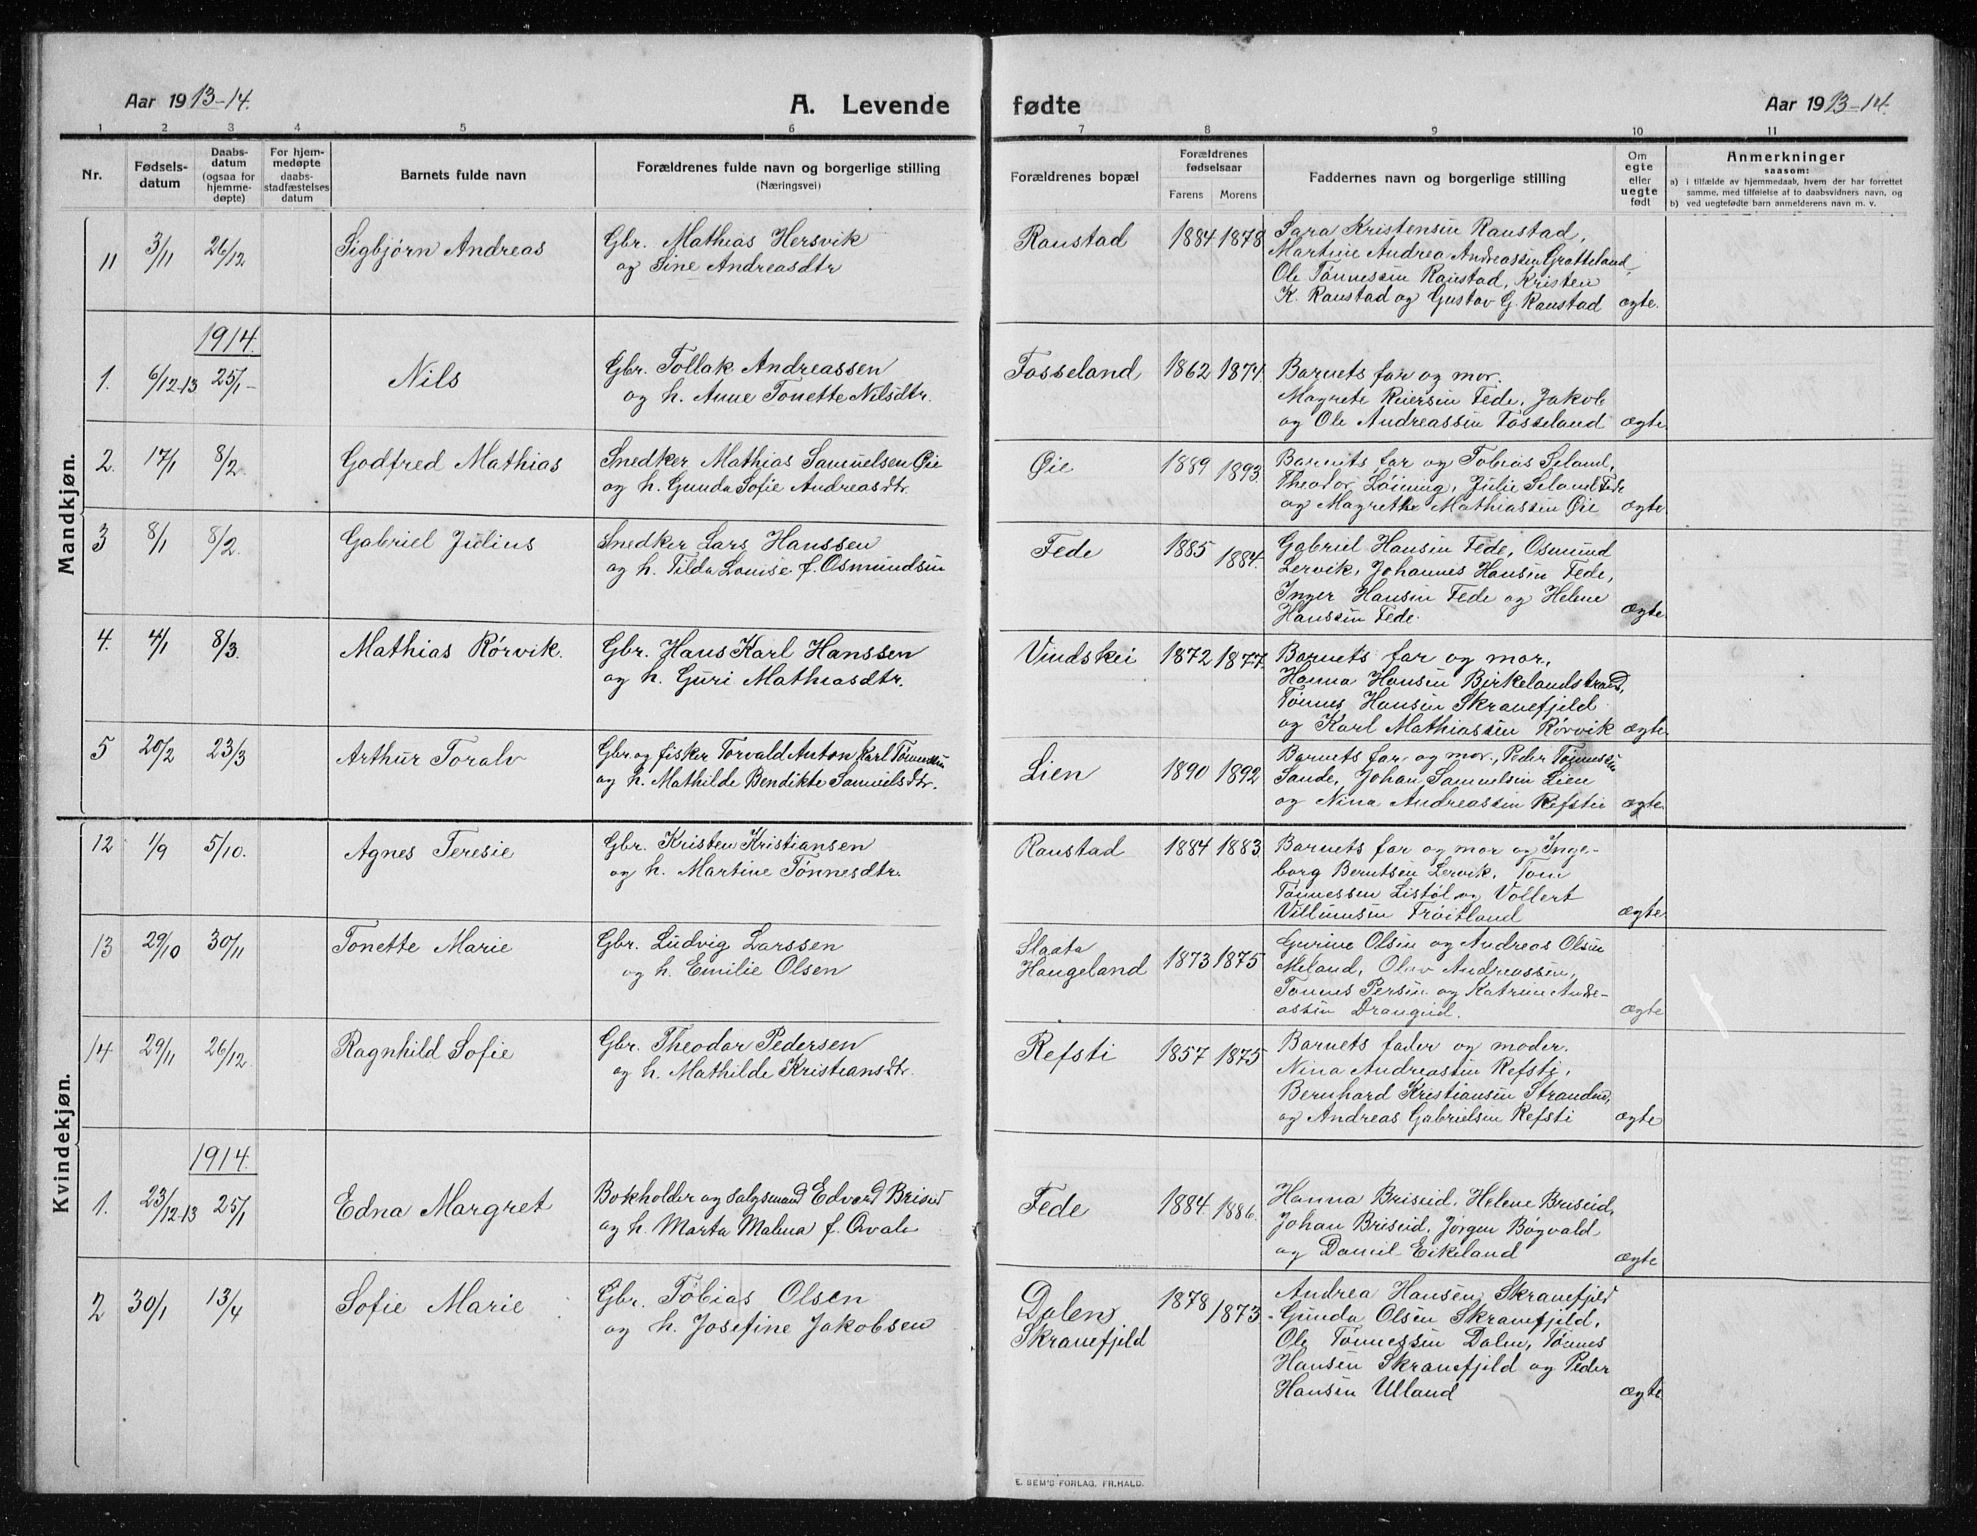 Aar 1913-14.
A. Levende
fødte
Aar 1913-14.
1 2 3 4 5 6 7 8 9 10 11
Nr.
Fødsels-
datum
Daabs-
datum
(ogsaa for
hjemme-
døpte)
For hjem-
medøpte
daabs-
stadfæstelses
datum
Barnets fulde navn
Forældrenes fulde navn og borgerlige stilling
(Næringsvei)
Forældrenes bopæl
Forældrenes
fødselsaar
Farens Morens
Faddernes navn og borgerlige stilling
Om
egte
eller
uegte
født
Anmerkninger
saasom:
a) i tilfælde av hjemmedaab, hvem der har forrettet
samme, med tilføielse af to daabsvidners navn, og
b) ved uegtefødte barn anmelderens navn m. v.
Mandkjøn.
11 3/11 26/12 Sigbjørn Andreas
Gbr. Mathias Hersvik
og Sine Andreasdtr
Raustad 1884 1878
Sara Kristensen Raustad,
Martine Andrea Andreassen Grøtteland,
Ole Tønnessen Raustad, Kristen
K. Raustad og Gustav G. Raustad ægte.
1914.
1. 6/12-13 25/1- Nils
Gbr. Tollak Andreassen
og h. Anne Tonette Nilsdtr.
Fosseland 1862 1871.
Barnets far og mor.
Magrete Reiersen Fede, Jakob
og Ole Andreassen Fosseland ægte.
2. 17/1 8/2 Godfred Mathias
Snedker Mathias Samuelsen Øie
og h. Gunda Sofie Andreasdtr.
Øie 1889 1893.
Barnets far og Tobias Seland,
Theodor Løining, Julie Seland Fede
og Magrethe Mathiassen Øie ægte.
3 8/1 8/2. Gabriel Julius
Snedker Lars Hanssen
og h. Tilda Louise f. Osmundsen
Fede 1885 1884.
Gabriel Hansen Fede, Osmund
Lervik, Johannes Hansen Fede,
Inger Hansen Fede og Helene
Hanssen Fede. ægte.
4. 4/1 8/3. Mathias Rørvik.
Gbr. Hans Karl Hanssen
og h. Guri Mathiasdtr.
Vindskei 1872 1877.
Barnets far og mor,
Hanna Hansen Birkelandstrand,
Tønnes Hansen Skranefjeld
og Karl Mathiassen Rørvik ægte.
5 20/2 23/3 Arthur Toralv
Gbr. og fisker Torvald Anton Karl Tønnessen
og h. Mathilde Bendikte Samuelsdtr.
Lien 1890 1892
Barnets far og mor, Peder Tønnessen
Sande, Johan Samuelsen Lien
og Nina Andreassen Refsti ægte.
Kvindekjøn.
12 1/9 5/10. Agnes Teresie
Gbr. Kristen Kristiansen
og h. Martine Tønnesdtr.
Raustad 1884 1883.
Barnets far og mor og Inge-
borg Berntsen Lervik, Tom
Tønnessen Listøl og Vollert
Villumsen Frøitland ægte.
13 29/10 30/11 Tonette Marie
Gbr. Ludvig Larssen
og h. Emilie Olsen
Slaata
Haugeland 1873 1875
Gurine Olsen og Andreas Olsen
Meland, Olav Andreassen,
Tønnes Persen og Katrine Andre-
assen Drangeid. ægte
14 29/11 26/12. Ragnhild Sofie
Gbr. Theodor Pedersen
og h. Mathilde Kristiansdtr.
Refsti 1857 1875
Barnets fader og moder.
Nina Andreassen Refsti,
Bernhard Kristiansen Stranden,
og Andreas Gabrielsen Refsti ægte
1914.
1. 23/12-13 25/1 Edna Margret
Bokholder og salgsmand Edvard Briseid
og h. Marta Malena f. Kvale
Fede 1884. 1886.
Hanna Briseid, Helene Briseid,
Johan Briseid, Jørgen Bøgvald
og Daniel Eikeland ægte
2 30/1 13/4 Sofie Marie
Gbr. Tobias Olsen
og h. Josefine Jakobsen
Dalen
Skranefjeld 1878 1873
Andrea Hansen Skranefjeld
Gunda Olsen Skranefjeld,
Ole Tønnessen Dalen, Tønnes
Hansen Skranefjeld og Peder
Hansen Ulland ægte
E. SEM'S FORLAG. FR.HALD.